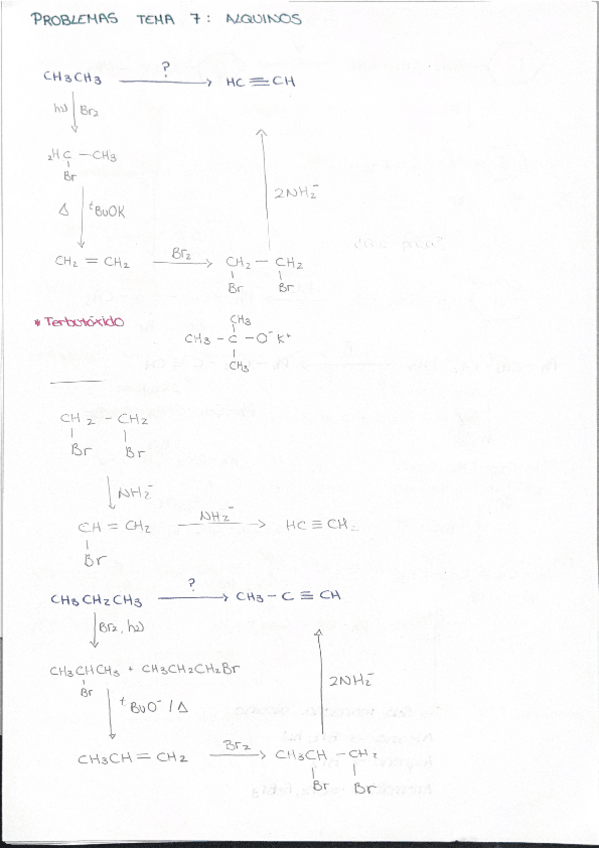 PROBLEMAS TEMA 7: ALQUINOS
?
CH3CH3 → HC ≡ CH
hν Br2
2HC — CH3
Br
2NH2⁻
Δ tBuOK
CH2 = CH2 Br2 → CH2 — CH2
Br Br
* Terbutóxido
CH3
CH3 - C - O⁻ K⁺
CH3
CH2 - CH2
Br Br
NH2⁻
CH = CH2 NH2⁻ → HC ≡ CH2
Br
?
CH3CH2CH3 → CH3 - C ≡ CH
Br2, hν
CH3CHCH3 + CH3CH2CH2Br
Br
2NH2⁻
tBuO⁻ / Δ
CH3CH = CH2 Br2 → CH3CH - CH2
Br Br